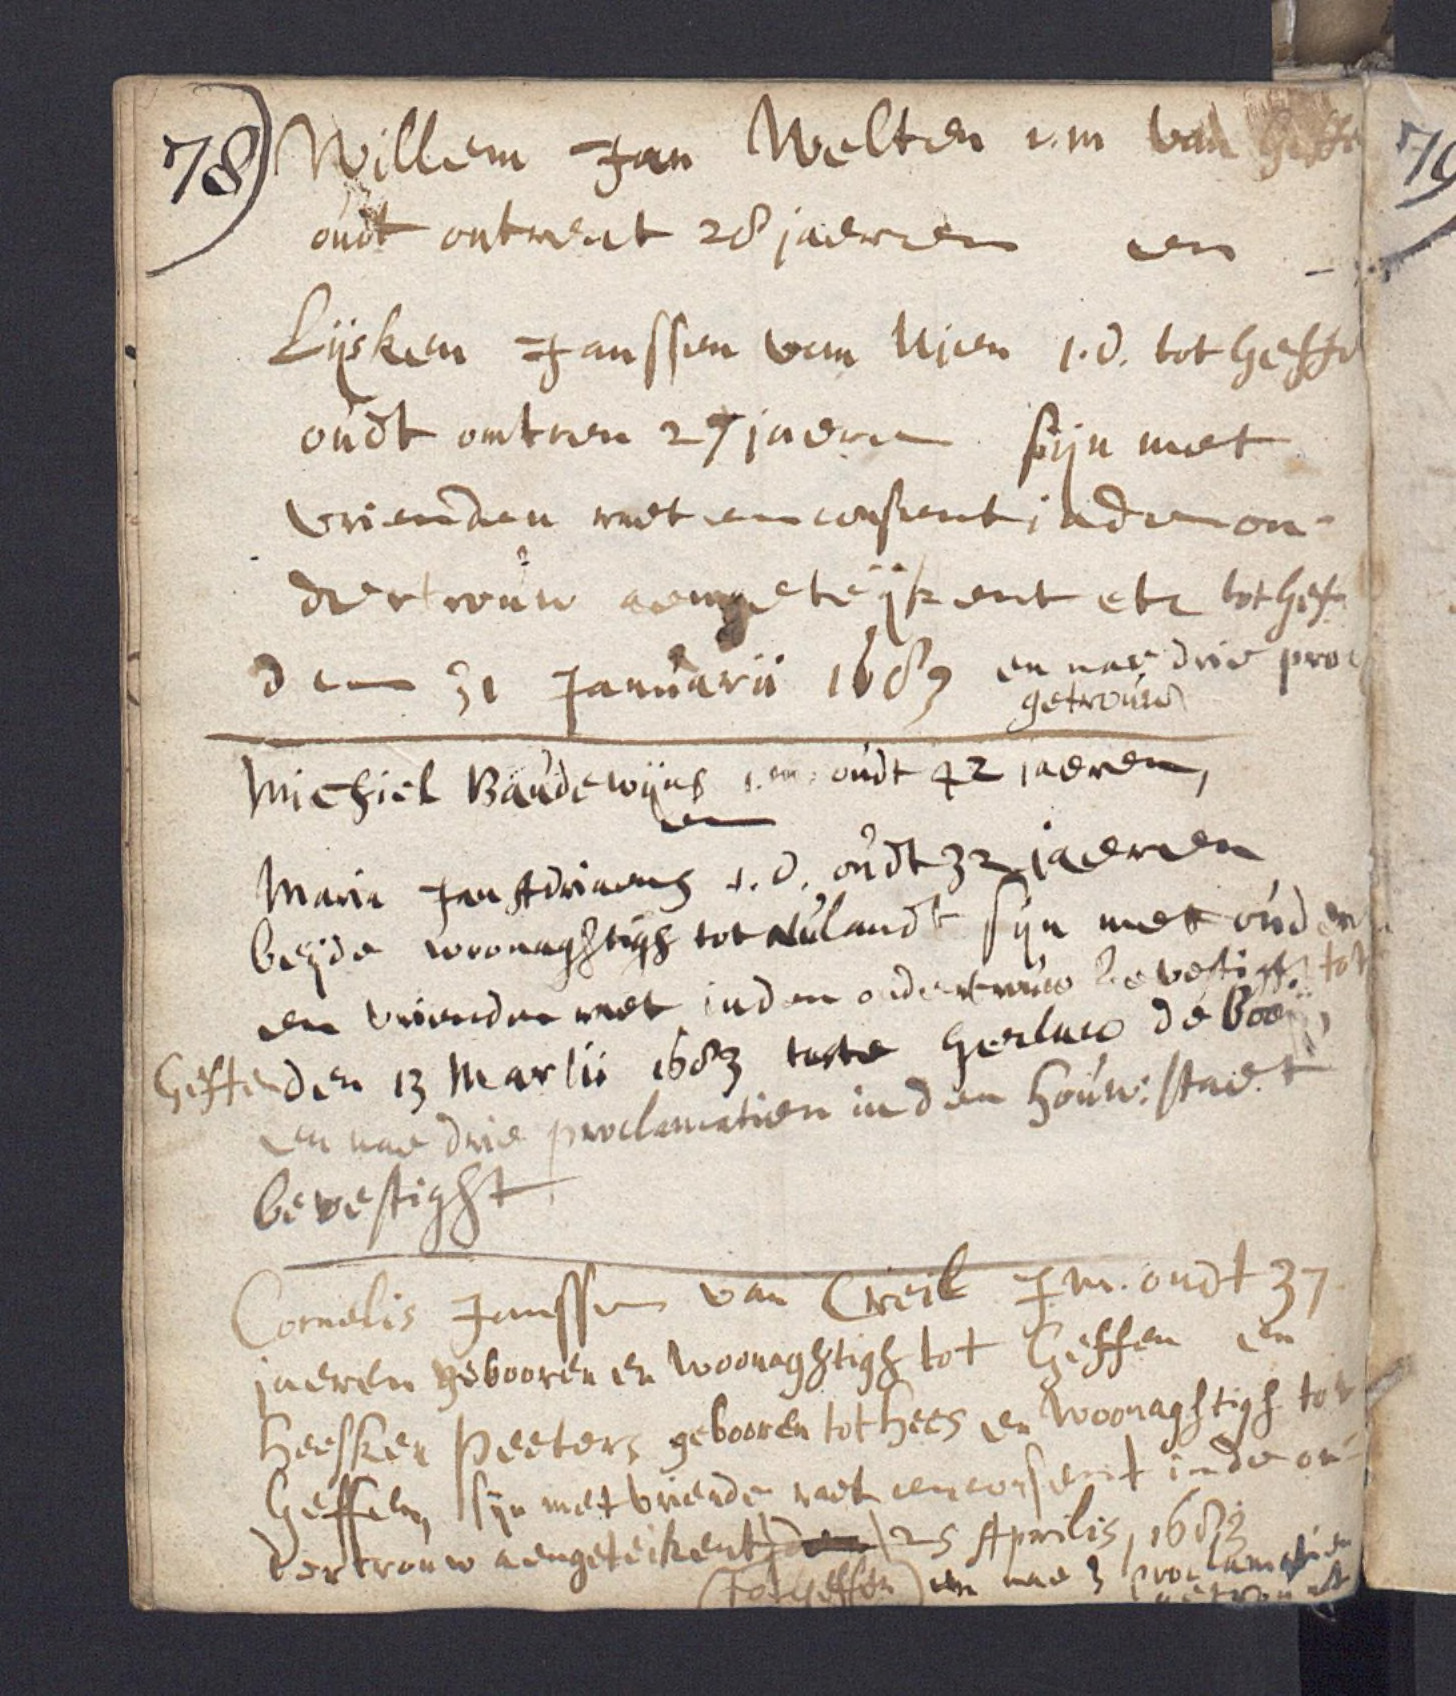 78) Willem Jan Welten j.m van Geffe
oudt ontrent 28 jaeren en
Lijsken Janssen van Uijen j.d. tot Geffe
oudt omtren 27 jaere sijn met
vrienden raet en consent inde on-
dertrouw aengeteijkent etc tot Gef
den 31 Januarii 1683 en nae drie proc
getrouw
Michiel Baudewijns j.m. oudt 42 jaeren,
en
Maria Jan Adriaens j.d. oudt 32 jaeren
beijde woonaghtigh tot Nulandt sijn met ouder
en vrienden raet in den ondertrouw bevestight tot
Geffen den 13 Martii 1683 teste Gerlaco de Booij,
en nae drie proclamatien in den houw: staet
bevestight
Cornelis Janssen van Creil J.m. oudt 37
jaeren gebooren en woonaghtigh tot Geffen en
Heesken Peeters gebooren tot Hees en woonaghtigh tot
Geffen, sijn met vriende raet en consent inde on-
dertrouw aengeteikent den 25 Aprilis, 1683
(tot Geffen) en nae 3 proclamatien
getrouwt
79